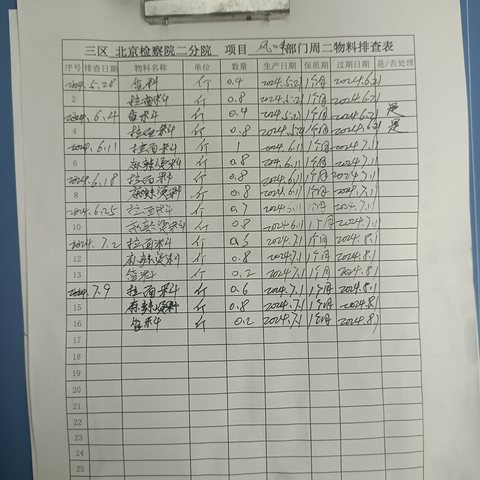 三区 北京检察院二分院 项目 风味 部门周二物料排查表
序号 排查日期 物料名称 单位 数量 生产日期 保质期 过期日期 是/否处理
2024.5.28 鱼料 斤 0.4 2024.5.21 1个月 2024.6.21
2 拉面料 斤 0.8 2024.5.21 1个月 2024.6.21
2024.6.4 鱼料 斤 0.4 2024.5.21 1个月 2024.6.21 是
4 拉面料 斤 0.8 2024.5.21 1个月 2024.6.21 是
2024.6.11 拉面料 斤 1 2024.6.11 1个月 2024.7.11
6 麻辣烫料 斤 0.8 2024.6.11 1个月 2024.7.11
2024.6.18 拉面料 斤 0.8 2024.6.11 1个月 2024.7.11
8 麻辣烫料 斤 0.8 2024.6.11 1个月 2024.7.11
2024.6.25 拉面料 斤 0.7 2024.6.11 1个月 2024.7.11
10 麻辣烫料 斤 0.8 2024.6.11 1个月 2024.7.11
2024.7.2 拉面料 斤 0.5 2024.7.1 1个月 2024.8.1
12 麻辣烫料 斤 0.8 2024.7.1 1个月 2024.8.1
13 鱼料 斤 0.2 2024.7.1 1个月 2024.8.1
2024.7.9 拉面料 斤 0.6 2024.7.1 1个月 2024.8.1
15 麻辣烫料 斤 0.8 2024.7.1 1个月 2024.8.1
16 鱼料 斤 0.2 2024.7.1 1个月 2024.8.1
17
18
19
20
21
22
23
24
25